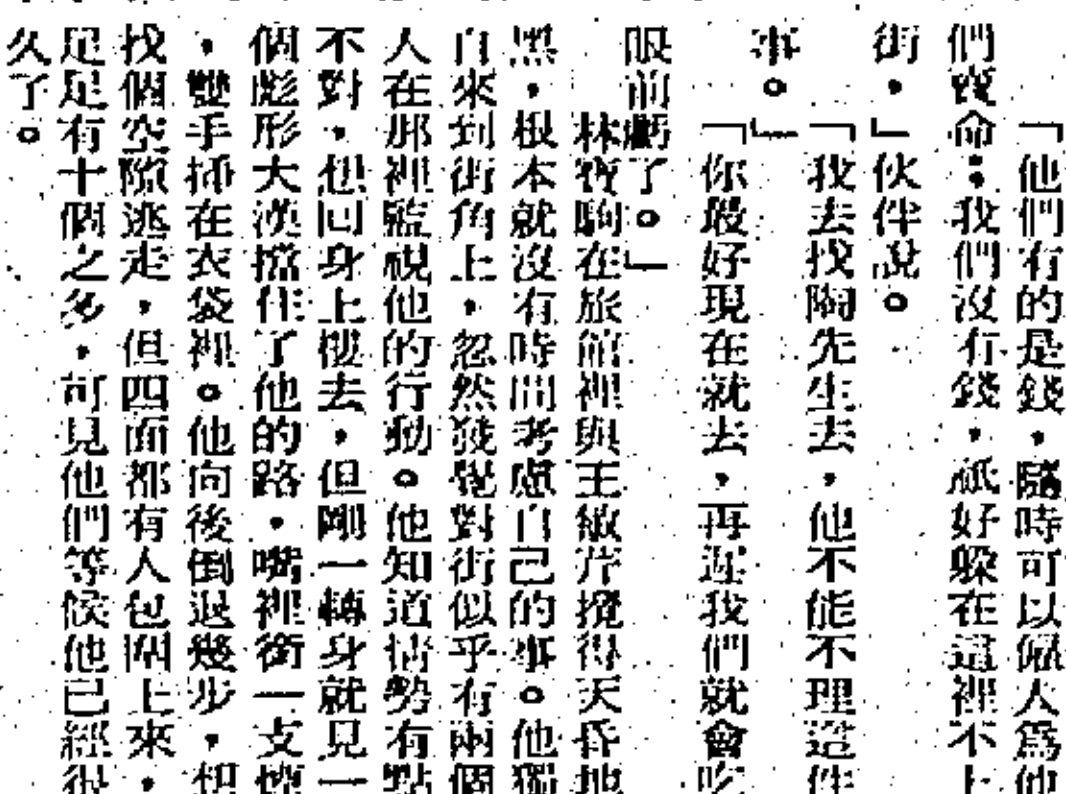 「他們有的是錢，隨時可以僱人為他
們賣命；我們沒有錢，祇好躲在這裡不上
街，」伙伴說。
「我去找陶先生去，他不能不理這件
事。」
「你最好現在就去，再遲我們就會吃
眼前虧了。」
林寶駒在旅館裡與王敏芹攪得天昏地
黑，根本就沒有時間考慮自己的事。他獨
自來到街角上，忽然發覺對街似乎有兩個
人在那裡監視他的行動。他知道情勢有點
不對，想回身上樓去，但剛一轉身就見一
個彪形大漢擋住了他的路，嘴裡銜一支煙
，雙手插在衣袋裡。他向後倒退幾步，想
找個空隙逃走，但四面都有人包圍上來，
足足有十個之多，可見他們等候他已經很
久了。